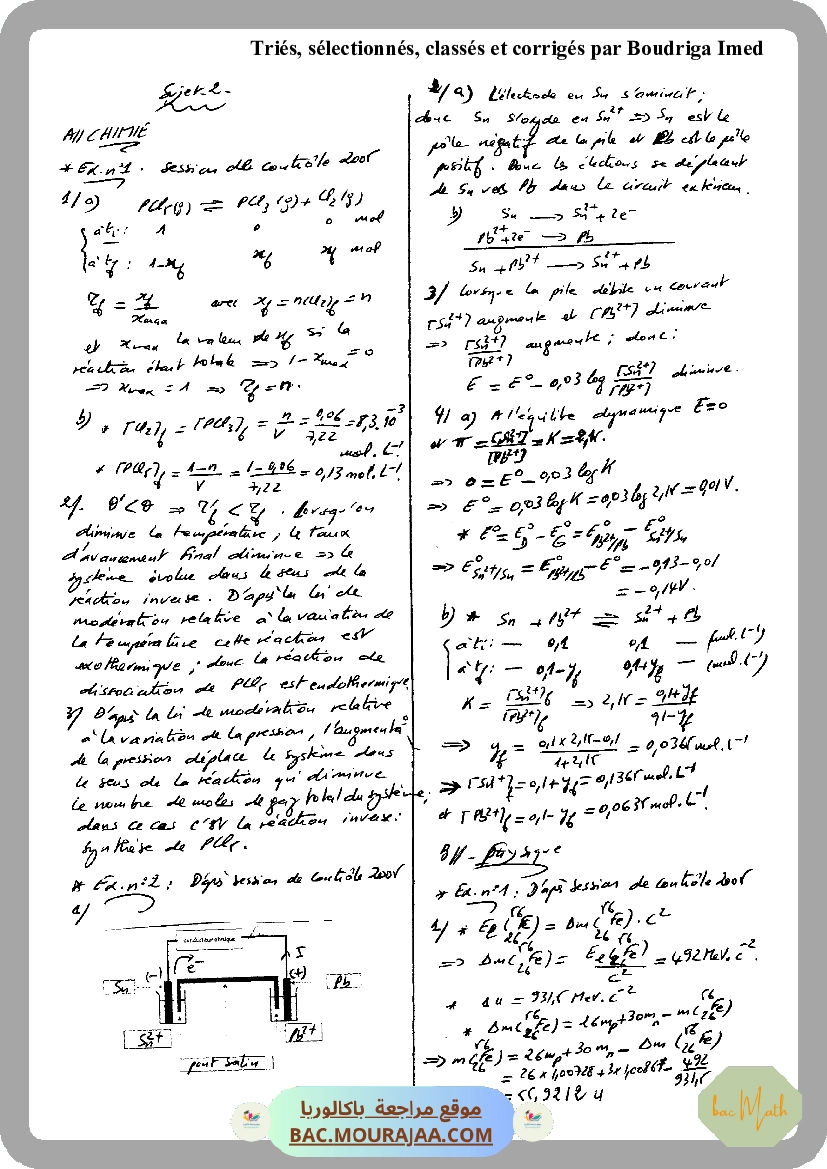 Triés, sélectionnés, classés et corrigés par Boudriga Imed
Sujet 2-
A// CHIMIE
* Ex.n°1. session de contrôle 2005
1/ a) PCl5(g) ⇌ PCl3(g) + Cl2(g)
à ti : 1 0 0 mol
à tf : 1-xf xf xf mol
τf = xf/xmax avec xf = n(Cl2)f = n
et xmax la valeur de xf si la
réaction était totale ⟹ 1-xmax = 0
⟹ xmax = 1 ⟹ τf = n.
b) * [Cl2]f = [PCl3]f = n/V = 0,06/7,22 = 8,3.10⁻³
mol.L⁻¹
* [PCl5]f = 1-n/V = 1-0,06/7,22 = 0,13 mol.L⁻¹.
2/. θ' < θ ⟹ τ'f < τf. Lorsqu'on
diminue la température, le taux
d'avancement final diminue ⟹ le
système évolue dans le sens de la
réaction inverse. D'après la loi de
modération relative à la variation de
la température cette réaction est
exothermique ; donc la réaction de
dissociation de PCl5 est endothermique
3/ D'après la loi de modération relative
à la variation de la pression, l'augmentat°
de la pression déplace le système dans
le sens de la réaction qui diminue
le nombre de moles de gaz total du système,
dans ce cas c'est la réaction inverse:
synthèse de PCl5.
* Ex.n°2 : D'après session de contrôle 2005
a)
conducteur ohmique
I
e⁻
(-) (+)
Sn Pb
Sn²⁺ Pb²⁺
pont salin
2/ a) L'électrode en Sn s'amincit ;
donc Sn s'oxyde en Sn²⁺ ⟹ Sn est le
pôle négatif de la pile et Pb est le pôle
positif. Donc les électrons se déplacent
de Sn vers Pb dans le circuit extérieur.
b) Sn ⟶ Sn²⁺ + 2e⁻
Pb²⁺ + 2e⁻ ⟶ Pb
Sn + Pb²⁺ ⟶ Sn²⁺ + Pb
3/ Lorsque la pile débite un courant
[Sn²⁺] augmente et [Pb²⁺] diminue
⟹ [Sn²⁺]/[Pb²⁺] augmente ; donc :
E = E° - 0,03 log [Sn²⁺]/[Pb²⁺] diminue.
4/ a) A l'équilibre dynamique E=0
et π = [Sn²⁺]/[Pb²⁺] = K = 2,15.
⟹ 0 = E° - 0,03 log K
⟹ E° = 0,03 log K = 0,03 log 2,15 = 0,01 V.
* E° = E°D - E°G = E°Pb²⁺/Pb - E°Sn²⁺/Sn
⟹ E°Sn²⁺/Sn = E°Pb²⁺/Pb - E° = -0,13 - 0,01
= -0,14 V.
b) * Sn + Pb²⁺ ⇌ Sn²⁺ + Pb
à ti : — 0,1 0,1 — (mol.L⁻¹)
à tf : — 0,1-yf 0,1+yf — (mol.L⁻¹)
K = [Sn²⁺]f/[Pb²⁺]f ⟹ 2,15 = 0,1+yf/0,1-yf
⟹ yf = 0,1 x 2,15 - 0,1/1+2,15 = 0,0365 mol.L⁻¹
⟹ [Sn²⁺]f = 0,1 + yf = 0,1365 mol.L⁻¹
et [Pb²⁺]f = 0,1 - yf = 0,0635 mol.L⁻¹.
B// - Physique
* Ex.n°1 : D'après session de contrôle 2005
1/ * El(⁵⁶₂₆Fe) = Δm(⁵⁶₂₆Fe).c²
⟹ Δm(⁵⁶₂₆Fe) = El(⁵⁶₂₆Fe)/c² = 492 MeV.c⁻².
* 1u = 931,5 MeV.c⁻²
* Δm(⁵⁶₂₆Fe) = 26mp + 30mn - m(⁵⁶₂₆Fe)
⟹ m(⁵⁶₂₆Fe) = 26mp + 30mn - Δm(⁵⁶₂₆Fe)
= 26 x 1,00728 + 3 x 1,00867 - 492/931,5
= 55,9212 u
موقع مراجعة باكالوريا
BAC.MOURAJAA.COM
bac Math